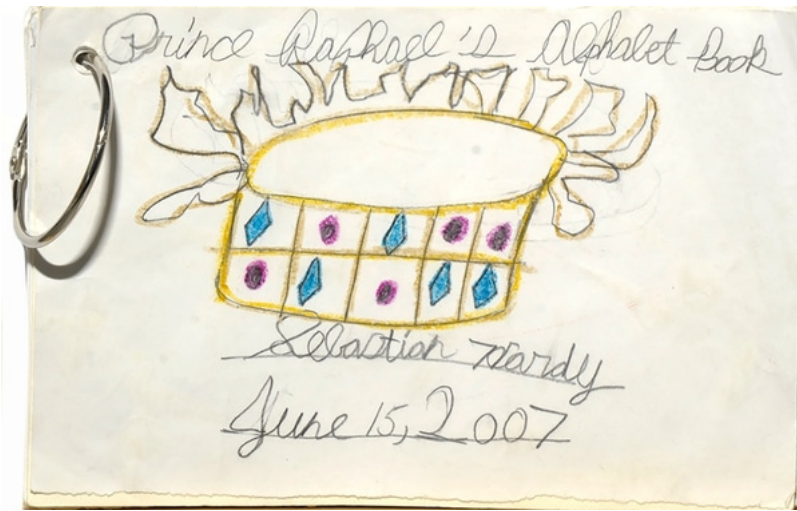 Prince Raphael's Alphabet Book
Sebastian Hardy
June 15, 2007